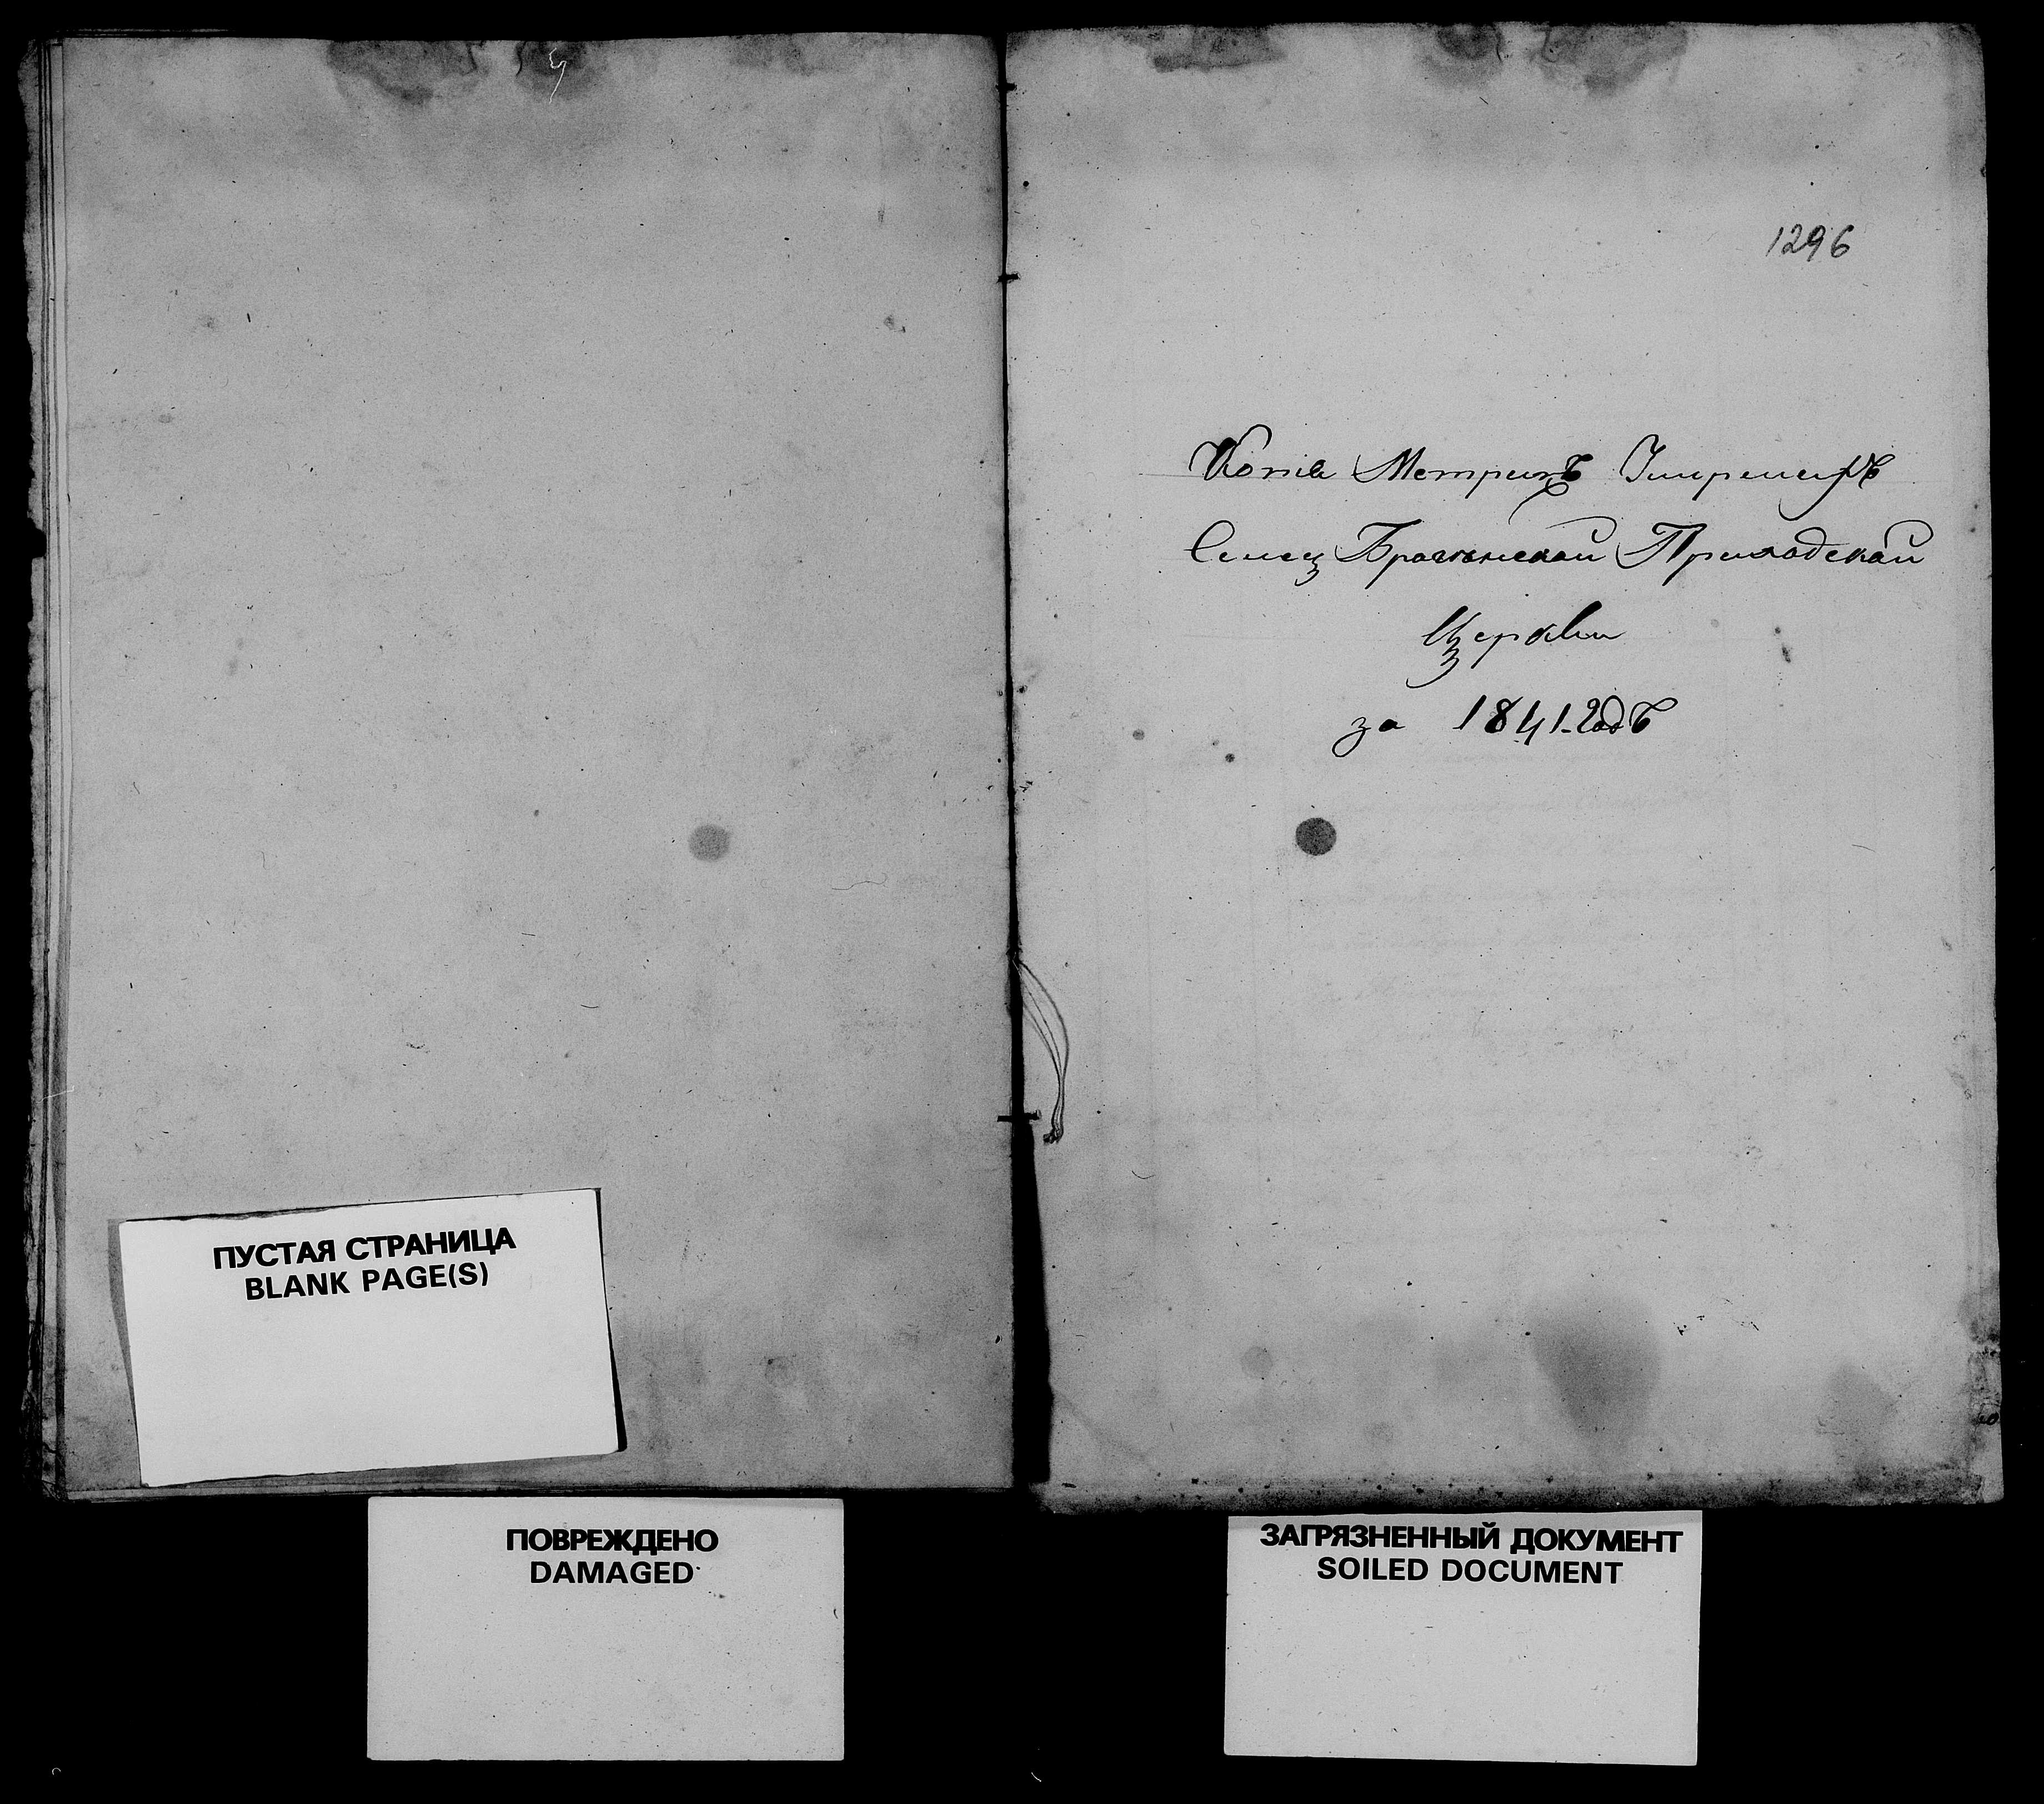 1296
Копiя Метрикъ Умершихъ
Брагинской Приходской
Церкви
за 1841-Годъ
ПУСТАЯ СТРАНИЦА
BLANK PAGE(S)
ПОВРЕЖДЕНО
DAMAGED
ЗАГРЯЗНЕННЫЙ ДОКУМЕНТ
SOILED DOCUMENT